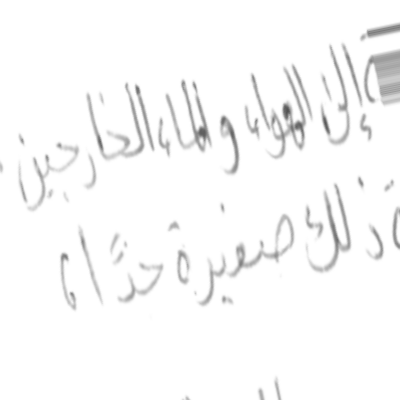 إلى الهواء والماء الخارجين
ذلك صغيرة جدًا